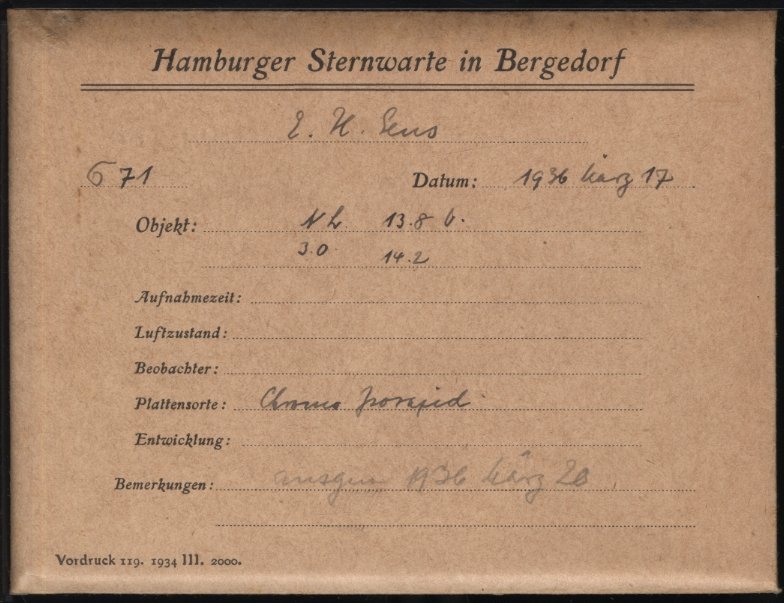 Hamburger Sternwarte in Bergedorf
E. H.
71 Datum: 1936 März 17
Objekt: 13.8
3.0 14.2
Aufnahmezeit:
Luftzustand:
Beobachter:
Plattensorte: Chromo Isorapid
Entwicklung:
Bemerkungen: 1936 März 20
Vordruck 119. 1934 III. 2000.